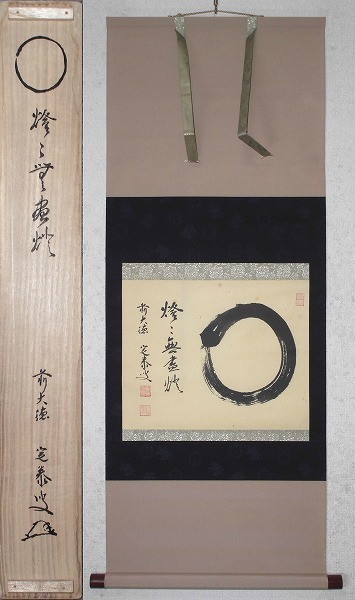 燈々無盡燈
前大徳 定泰叟
燈々無盡燈
前大徳 定泰叟